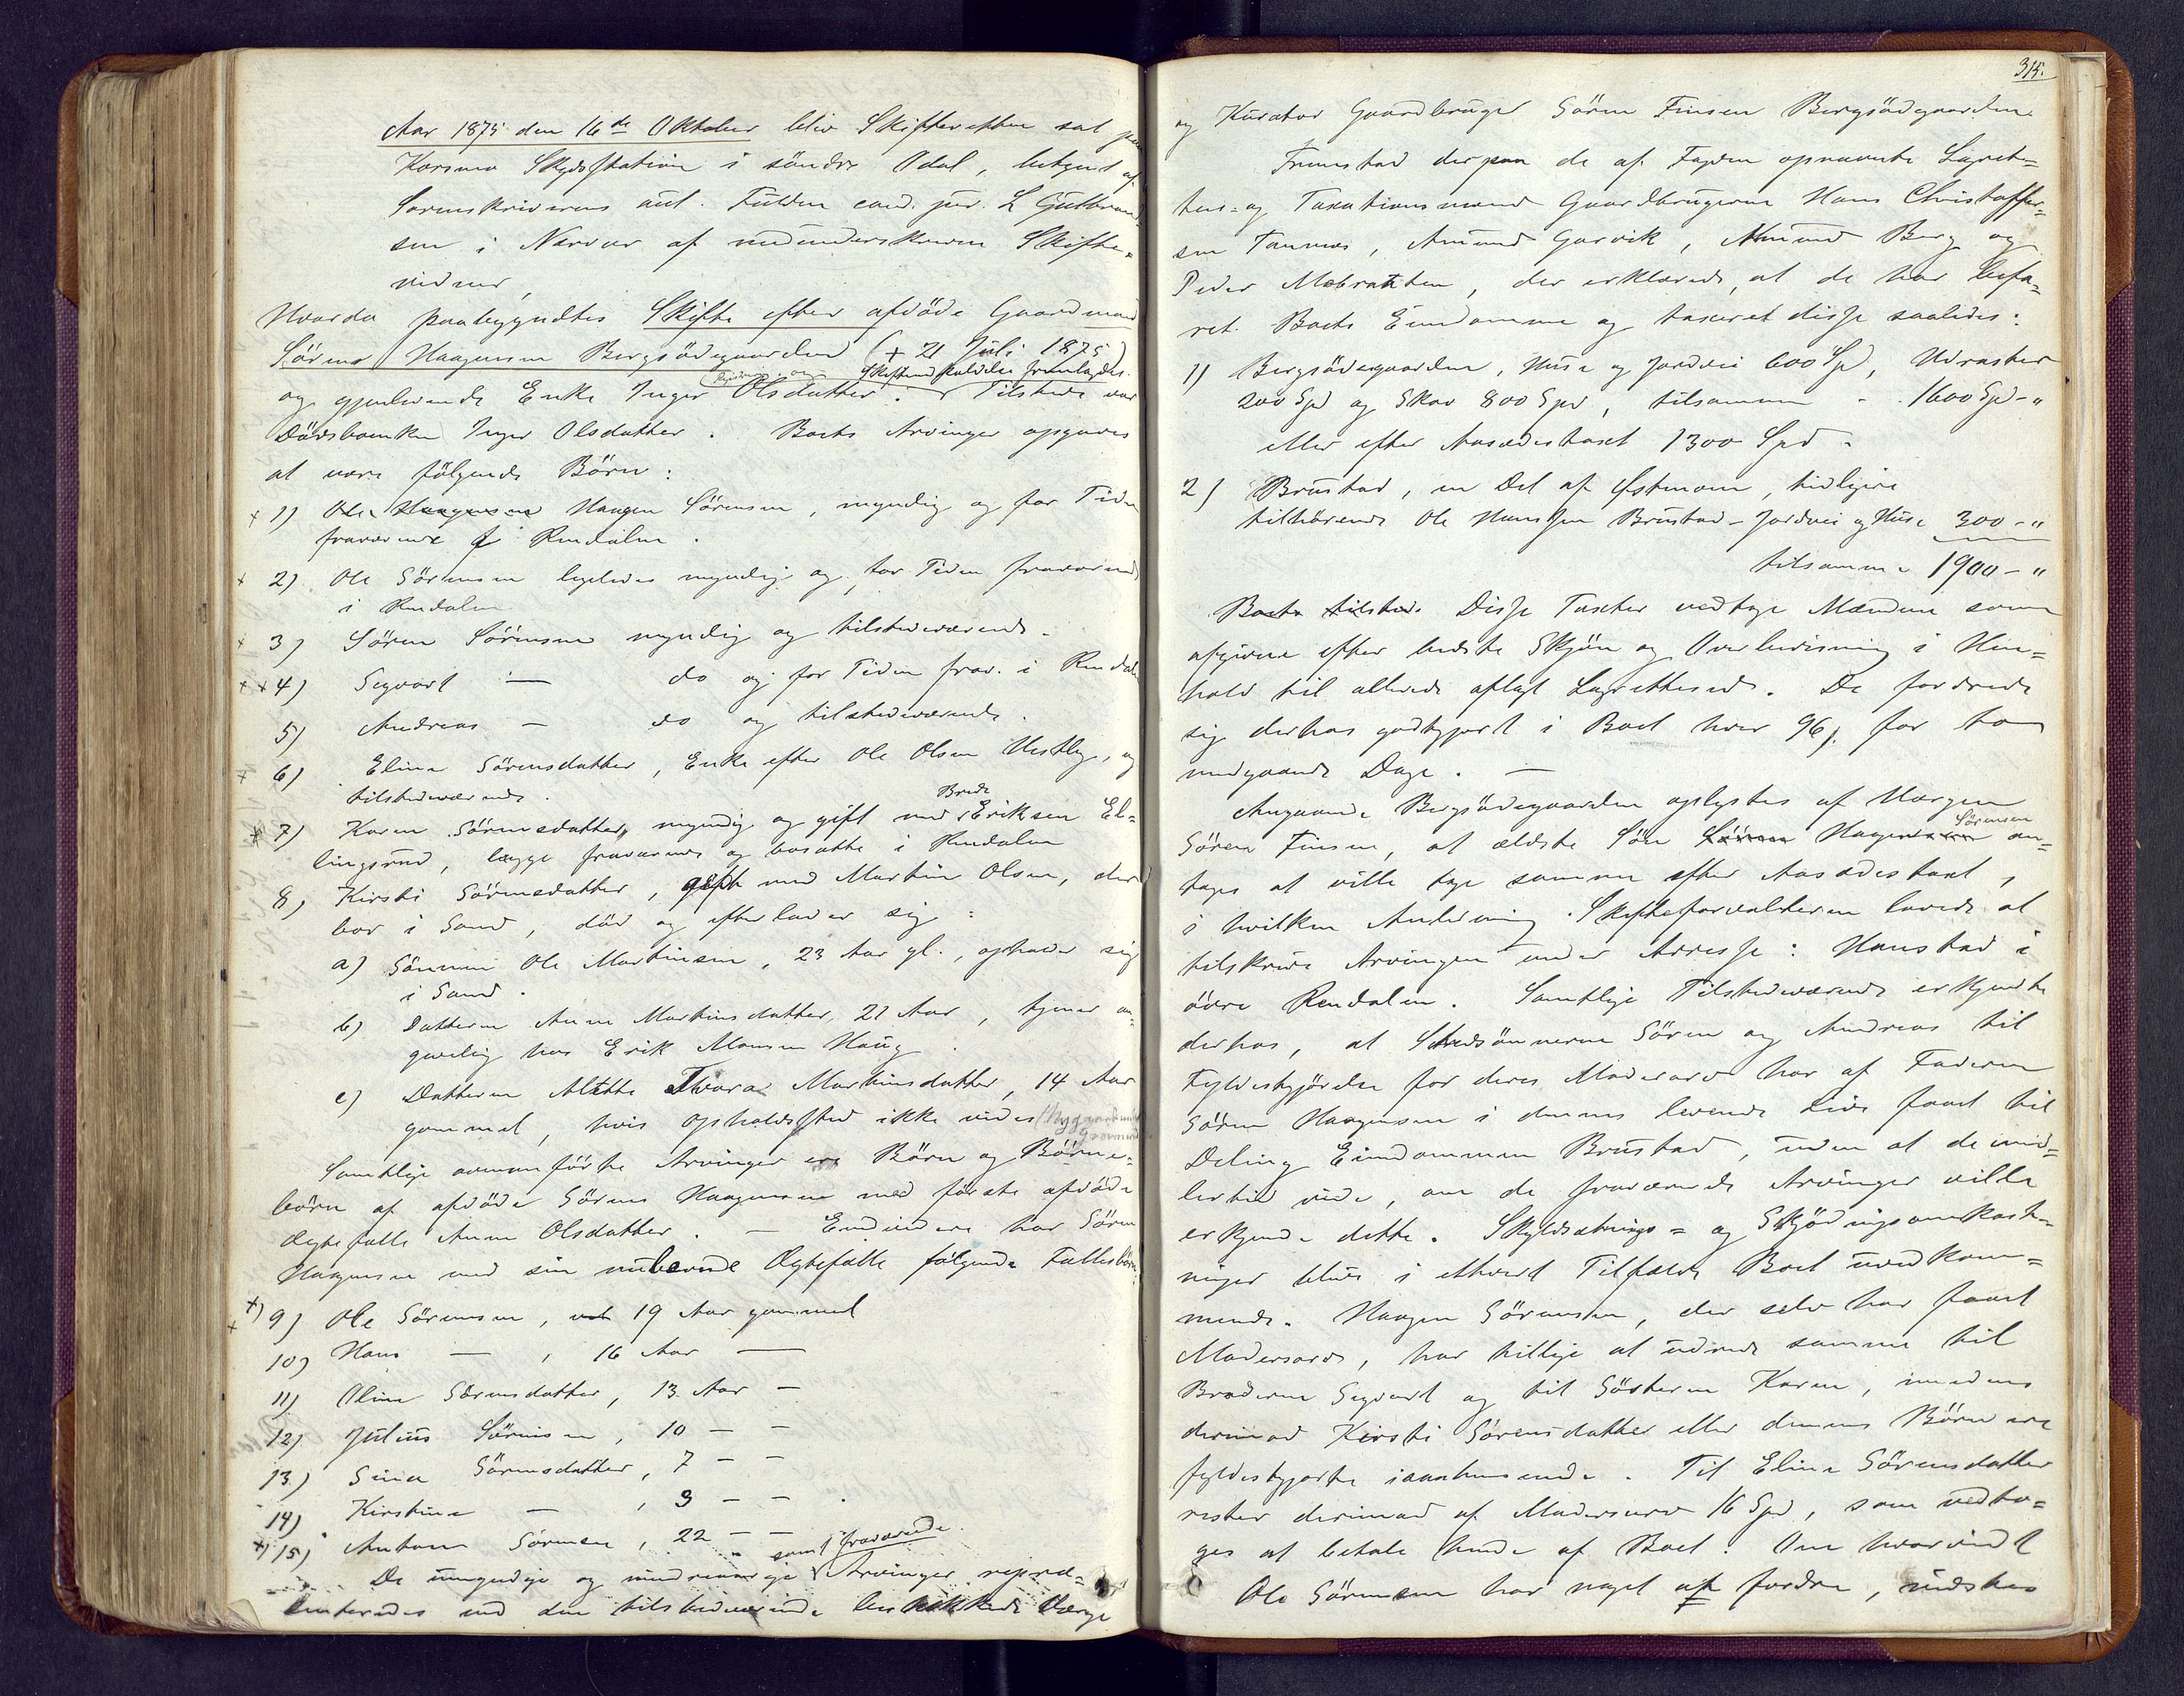 Aar 1875 den 16de Oktober blev Skifteretten sat paa
Korsmo Skydsstation i söndre Odal, betjent af
Sorenskriverens aut. Fuldm cand. jur. L Gulbrand=
sen i Nærvær af medunderskrevne Skifte=
vidner,
Hvorda paabegyndtes Skifte efter afdöde Gaardmand
Sören Haagensen Bergsödegaarden (+ 21 Juli 1875)
og gjenlevende Enke Inger Olsdatter. Skiftemskuldelse fremlagdes. Tilstede var
Dödsboenken Inger Olsdatter. Boets Arvinger opgaves
at være fölgende Börn:
1) Ole Haagensen Haagen Sörensen, myndig og for Tiden
fraværende i Rendalen.
2) Ole Sörensen ligeledes myndig og for Tiden fraværende
i Rendalen
3) Sören Sörensen myndig og tilstedeværende.
4) Sigvart — do og for Tiden frav. i Rendalen
5) Andreas — do og tilstedeværende.
6) Eline Sörensdatter, Enke efter Ole Olsen Vestby, og
tilstedeværende.
7) Karen Sörensdatter, myndig og gift med Brede Eriksen El=
lingsrud, begge fraværende og bosatte i Rendalen
8) Kirsti Sörensdatter, gift med Martin Olsen, der
bor i Sand, död og efterlader sig:
a) Sönnen Ole Martinsen, 23 Aar gl., opholder sig
i Sand.
b) Datteren Anne Martinsdatter, 21 Aar, tjener an=
givelig hos Erik Monsen Haug
c) Datteren Alette Thora Martinsdatter, 14 Aar
gammel, hvis opholdssted ikke vides
Samtlige ovenanförte Arvinger ere Börn og Börne=
börn af afdöde Sören Haagensen med förste afdöde
Ægtefælle Anne Olsdatter. — Endvidere har Sören
Haagensen med sin nulevende Ægtefælle fölgende Fællesbörn:
9) Ole Sörensen, 19 Aar gammel
10) Hans — , 16 Aar —
11) Oline Sörensdatter, 13 Aar —
12) Julius Sörensen, 10 — —
13) Sina Sörensdatter, 7 — —
14) Kirstine — , 3 — — .
15) Anton Sörensen, 22 — —
De umyndige og mindreaarige samt fraværende Arvinger repræ=
senteredes ved den tilstedeværende beskikkede Værge
315.
og Kurator Gaardbruger Sören Finsen Bergsödegaarden.
Fremstod derpaa de af Fogden opnævnte Lagrette=
tes= og Taxationsmænd Gaardbrugerne Hans Christoffer=
sen Tannæs, Amund Garvik, Amund Berg og
Peder Mebraaten, der erklærede, at de har befa=
ret Boets Eiendomme og taxeret disse saaledes:
1) Bergsödegaarden, Huse og Jordvei 600 Spd, Udraster
200 Spd og Skov 800 Spd, tilsammen - - 1600 Spd - "
eller efter Aasædestaxt 1300 Spd.
2) Brustad, en Del af Østmoen, tidligere
tilhörende Ole Hanssen Brustad - Jordvei og Huse 300 - "
tilsammen 1900 - "
Boets tilsted. Disse Taxter vedtoge Mændene som
afgivne efter bedste Skjön og Overbevisning i Hen=
hold til allerede aflagt Lagretteseed. De fordrede
sig derhos godtgjort i Boet hver 96 s. for to
medgaaende Dage. —
Angaaende Bergsödegaarden oplystes af Værgen
Sören Finsen, at ældste Sön Sören Haagensen Sörensen an=
tages at ville tage samme efter Aasædestaxt,
i hvilken Anledning Skifteforvalteren lovede at
tilskrive Arvingen under Adresse: Hanstad i
övre Rendalen. Samtlige Tilstedeværende erkjendte
derhos, at Stedsönnerne Sören og Andreas til
Fyldestgjörelse for deres Mödrearv har af Faderen
Sören Haagensen i dennes levende Live faaet til
Deling Eiendommen Brustad, uden at de imid=
lertid vide, om de fraværende Arvinger ville
erkjende dette. Skyldsætnings= og Skjödningsomkost=
ninger blive i ethvert Tilfælde Boet uvedkom=
mende. Haagen Sörensen, der selv har faaet
Mödrearv, har tillige at udrede samme til
Broderen Sigvart og til Sösteren Karen, medens
derimod Kirsti Sörensdatter eller dennes Börn ere
fyldestgjorte i saahenseende. Til Eline Sörensdatter
rester derimod af Mödrearv 16 Spd, som vedto=
ges at betale hende af Boet. Om hvorvidt
Ole Sörensen har noget at fordre, vidstes